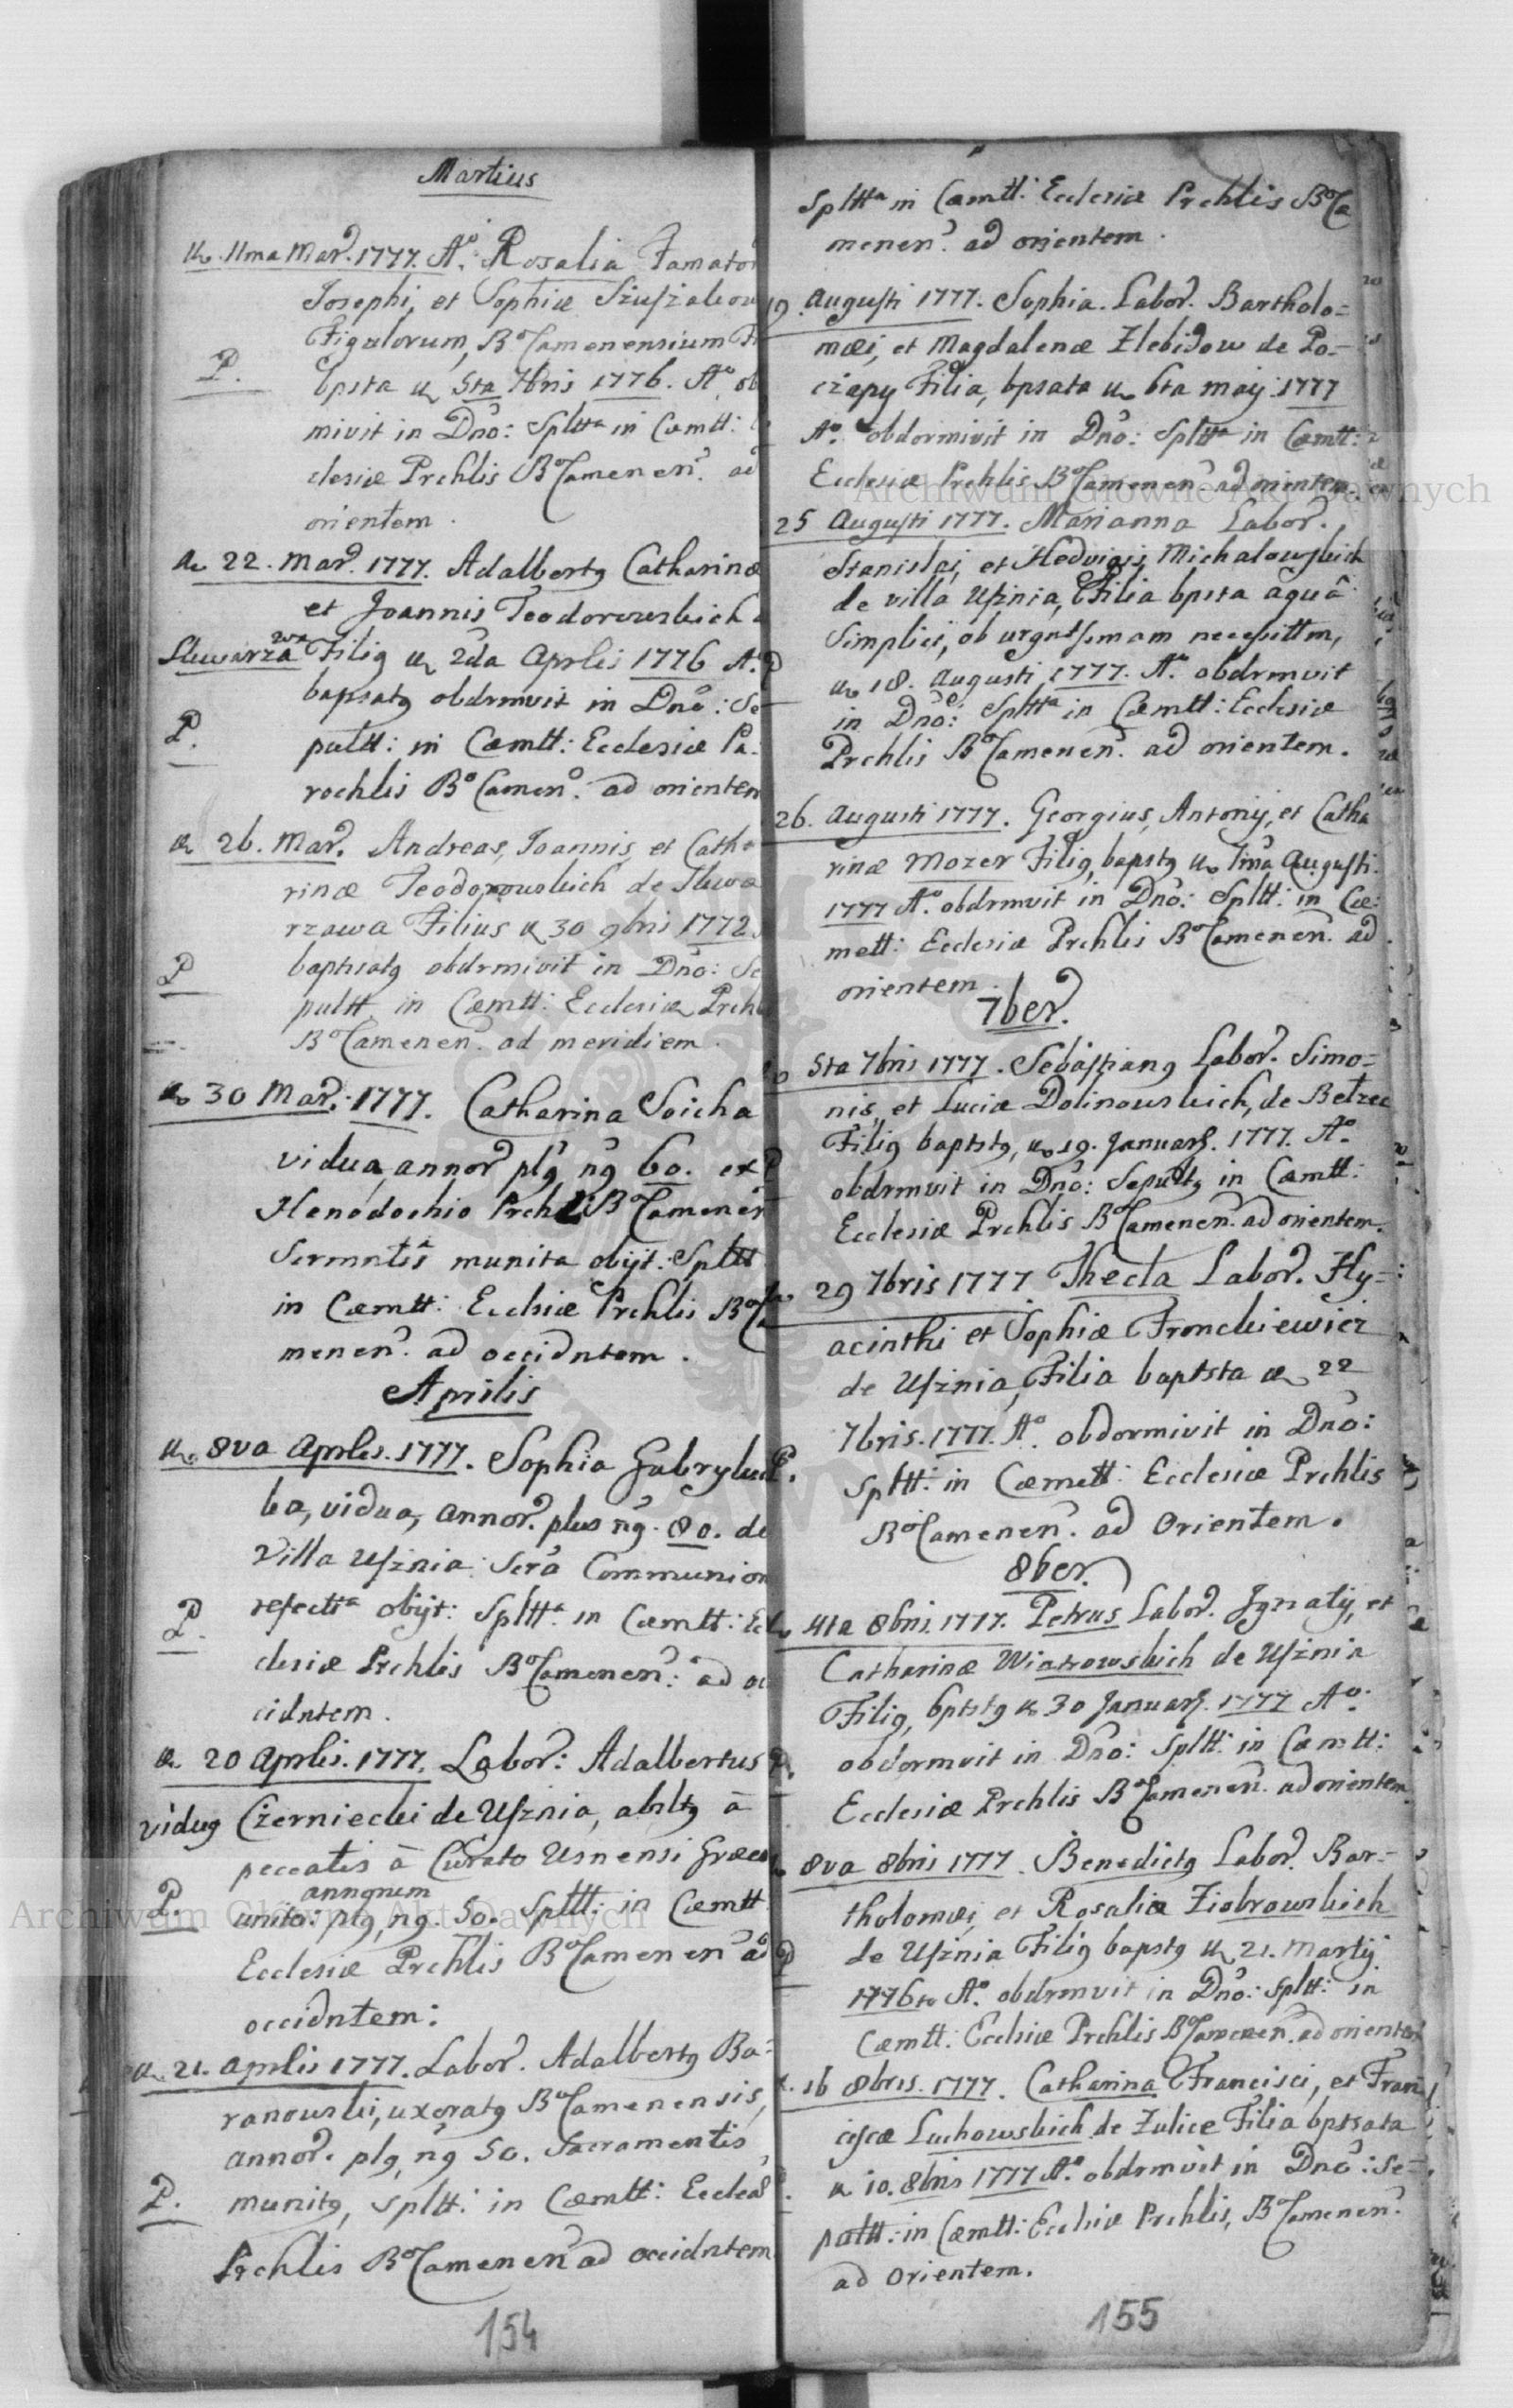 Martius
11ma Mar. 1777. Aº. Rosalia Famator
Josephi, et Sophiæ
Figulorum, BºCamenensium
P.
bpsta 5ta 7bris 1776. Aº. ob
mivit in Dno: Spltta in Cœmtt:
clesiæ Prchlis BºCamenen. ad
orientem.
22. Mar. 1777. Adalbertg Catharinæ
et Joannis Teodorowskich
Filig 2da Aprlis 1776 Aº.
bapsatg obdrmvit in Dno: Se
P.
pultt: in Cœmtt: Ecclesiæ Pa-
rochlis BºCamenº. ad orientem
26. Mar. Andreas, Joannis, et Catha
rinæ Teodorowskich de Skwa
rzawa Filius 30 9bris 1772.
P
baptisatg obdrmivit in Dno: Se
pultt. in Cœmtt: Ecclesiæ Prchl
BºCamenen. ad meridiem.
30 Mar. 1777. Catharina Soicha
vidua, annor plg ng 60. ex
Henodochio Prchl BºCamenen
Sermntis munita obijt: Spltt
in Cœmtt: Ecclsiæ Prchlis BºCa
menen. ad occidntem.
Aprilis
8va Aprlis. 1777. Sophia Gabryluc
ka, vidua, annor. plus ng. 80. de
Villa Usznia: Sera Communion
P.
refectta obijt: Spltta in Cœmtt: Ec
clesiæ Prchlis BºCamenen: ad oc
cidntem.
20 Aprlis. 1777. Labor: Adalbertus
vidug Czerniecki de Usznia, absltg à
peccatis à Curato Usnensi Græco
annorum
P.
unito: plg, ng. 50. Spltt: in Cœmtt
Ecclesiæ Prchlis BºCamenen ad
occidntem:
21. Aprlis 1777. Labor. Adalbertg Ba-
ranowski, uxoratg BºCamenensis,
annor. plg, ng 50. Sacramentis
P.
munitg, spltt: in Cœmtt: Eccleæ
Prchlis BºCamenen ad occidntem
154
Spltta in Cœmtt: Ecclesiæ Prchlis BºCa
menen. ad orientem.
19. Augusti 1777. Sophia. Labor. Bartholo=
mæi, et Magdalenæ Zlebidow de Po-
czapy Filia, bpsata 6ta maij. 1777
Aº. obdormivit in Dno: Spltta in Cœmtt:
Ecclesiæ Prchlis BºCamenen. ad orientem.
25 Augusti 1777. Marianna Labor.
Stanislai, et Hedvigis Michalowskich
de villa Usznia, Filia bpsta aquâ
Simplici, ob urgntssmam necssittm,
18. Augusti 1777. Aº. obdrmvit
in Dno: Spltta in Cœmtt: Ecclsiæ
Prchlis BºCamenen. ad orientem.
26. Augusti 1777. Georgius, Antonij, et Catha
rinæ Mozer Filig, bapstg 1ma Augusti.
1777 Aº. obdrmvit in Dno: Spltt: in Cœ:
mett: Ecclesiæ Prchlis BºCamenen. ad
orientem.
7ber.
5ta 7bris 1777. Sebastiang Labor. Simo=
nis, et Luciæ Dolinowskich, de Belzec
Filig baptstg, 19. Januarij. 1777. Aº.
obdrmvit in Dno: Sepultg in Cœmtt:
Ecclesiæ Prchlis BºCamenen. ad orientem.
29 7bris 1777. Thecla Labor. Hy-
acinthi et Sophiæ Fronckiewicz
de Usznia, Filia baptsta 22
7bris. 1777. Aº. obdormivit in Dno:
Spltt: in Cœmett: Ecclesiæ Prchlis
BºCamenen. ad Orientem.
8ber.
4ta 8bris. 1777. Petrus Labor. Ignatij, et
Catharinæ Wiatrowskich de Usznia
Filig, bptstg 30 Januarij. 1777 Aº.
obdormvit in Dno: Spltt: in Cœmtt:
Ecclesiæ Prchlis BºCamenen. ad orientem
8va 8bris 1777. Benedictg Labor. Bar-
tholomæi, et Rosaliæ Ziobrowskich
de Usznia Filig bapstg 21. Martij
1776to Aº. obdrmvit in Dno: spltt: in
Cœmtt: Ecclsiæ Prchlis BºCamenen. ad orientem
16 8bris. 1777. Catharina Francisci, et Fran
ciscæ Luchowskich de Zulice Filia bptsata
10. 8bris 1777 Aº. obdrmvit in Dno: Se=
pultt: in Cœmtt: Ecclsiæ Prchlis, BºCamenen.
ad Orientem.
155
Archiwum Główne Akt Dawnych
Archiwum Główne Akt Dawnych